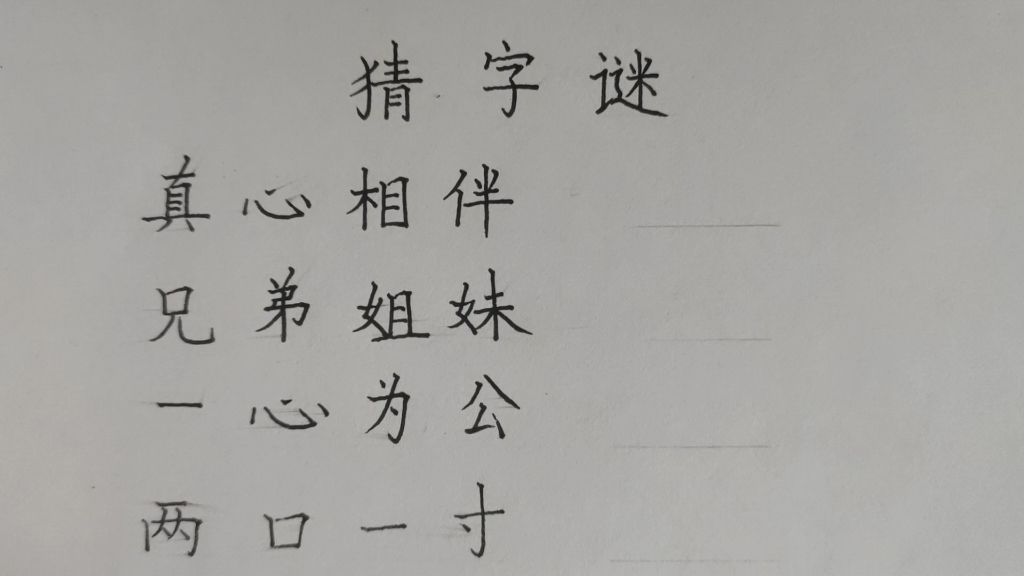 猜字谜
真心相伴
兄弟姐妹
一心为公
两口一寸